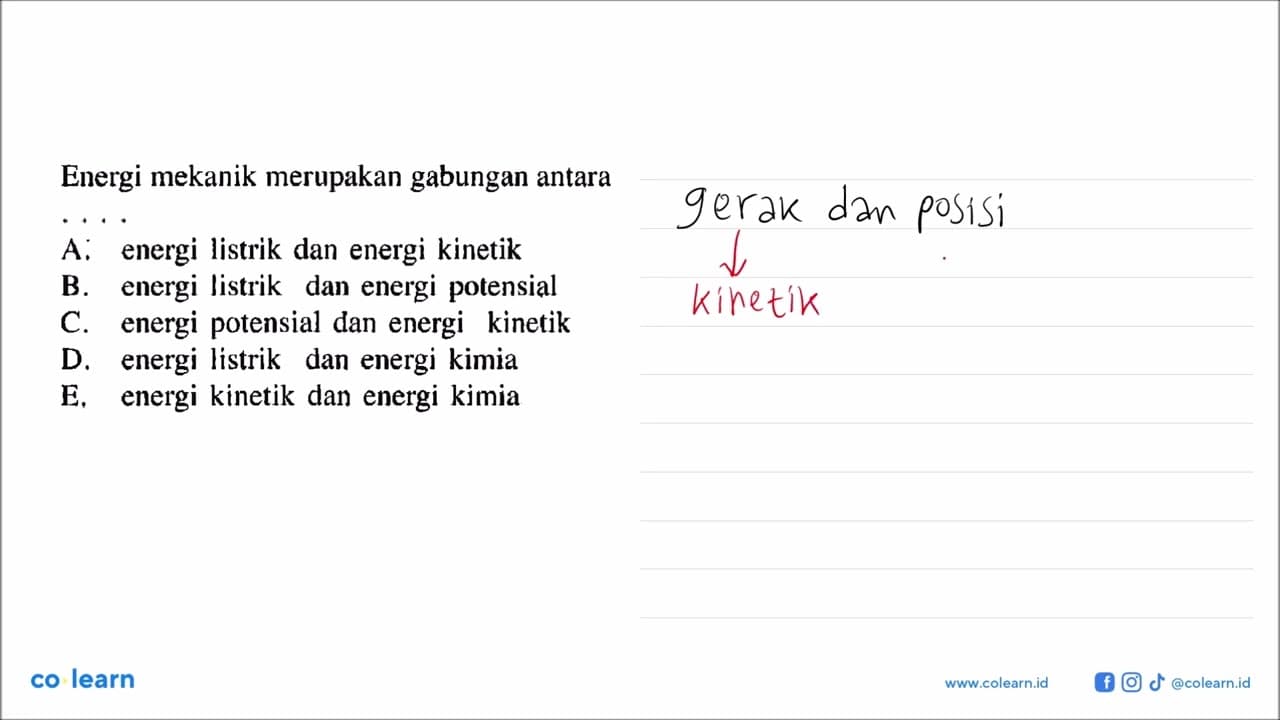 Energi mekanik merupakan gabungan antara
. . . .
A. energi listrik dan energi kinetik
B. energi listrik dan energi potensial
C. energi potensial dan energi kinetik
D. energi listrik dan energi kimia
E. energi kinetik dan energi kimia
gerak dan posisi
kinetik
co·learn
www.colearn.id
@colearn.id